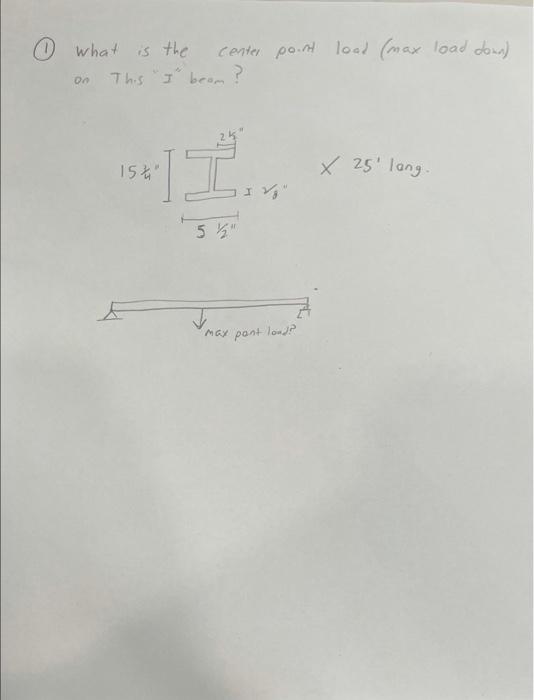 ① What is the center point load (max load down)
on This "I" beam?
2 ½"
15 ¼"
x 25' long.
5 ½"
max point load?